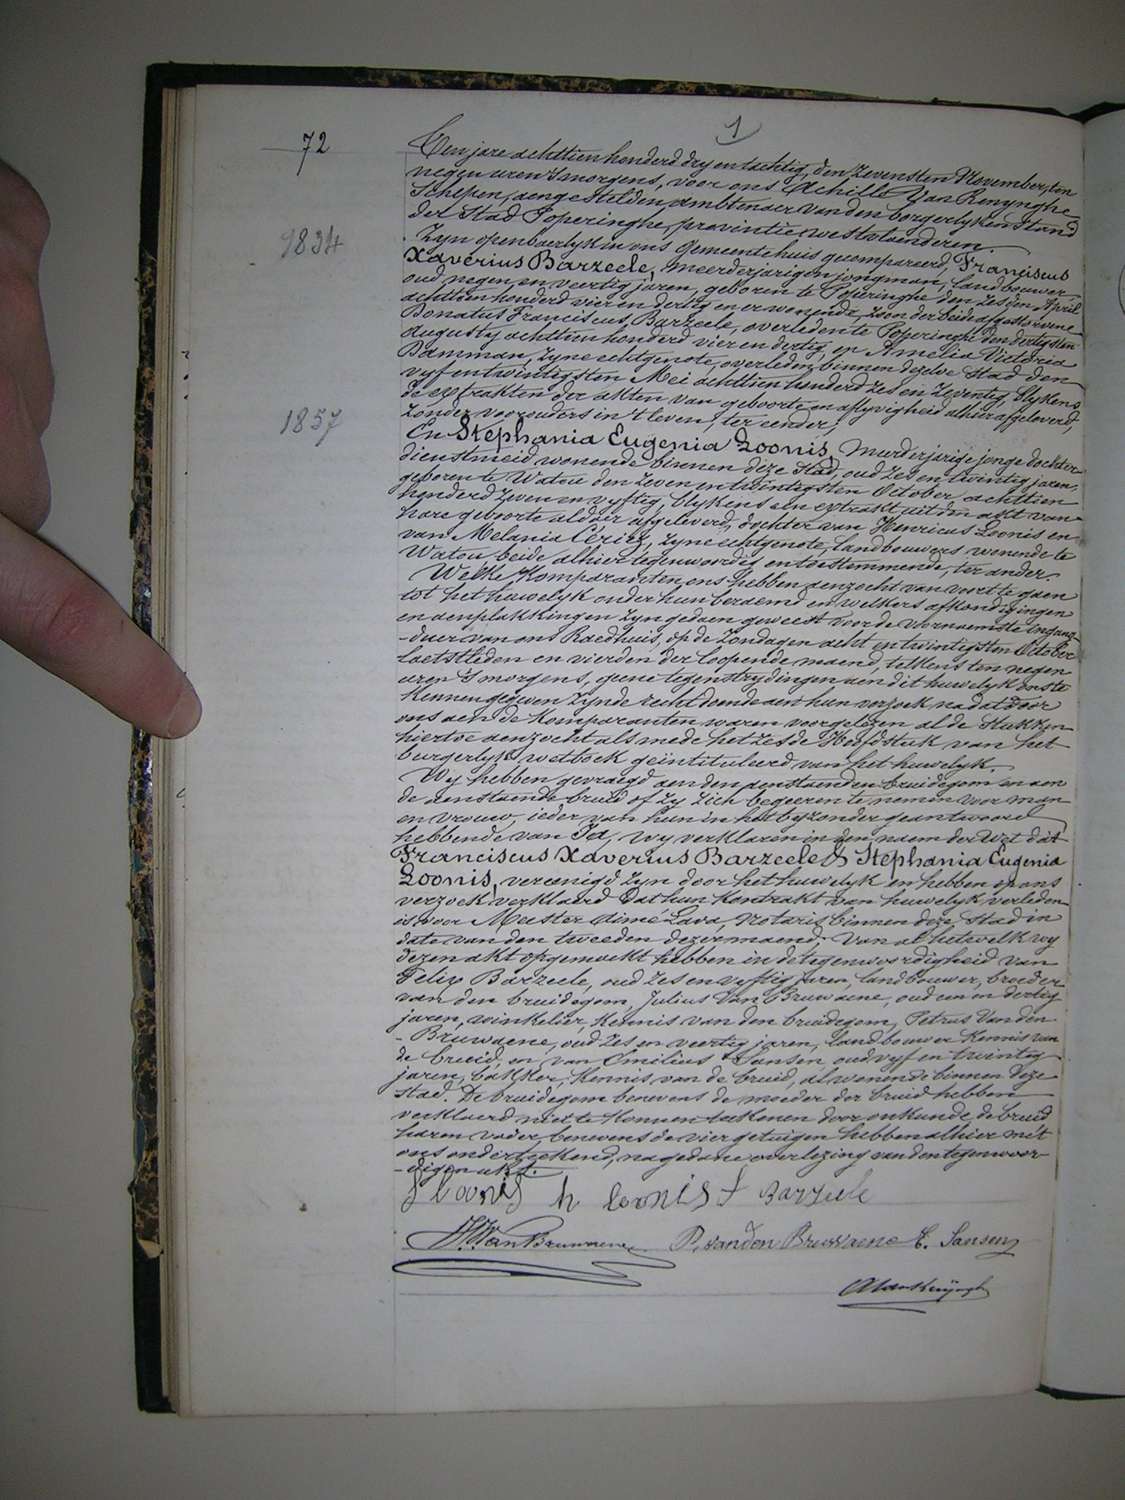 1
72
Ten jare achttien honderd dry en tachtig, den zevensten November, ten
negen uren 's morgens, voor ons Achille Van Renynghe
Schepen, aengestelden ambtenaer van den borgerlyken stand
der Stad Poperinghe, provintie westvlaenderen.
Zyn openbaerlyk in ons Gemeentehuis gecompareerd, Franciscus
1834
Xaverius Barzeele, meerderjarigen jongman, landbouwer,
oud negen en veertig jaren, geboren te Poperinghe den zesden April
achttien honderd vier en dertig en er wonende, zoon der beide afgestorvene
Donatus Franciscus Barzeele, overleden te Poperinghe den dertigsten
Augusty achttien honderd vier en dertig, en Amelia Victoria
Damman, zyne echtgenote, overleden binnen dezelve Stad den
vyf en twintigsten Mei achttien honderd zes en zeventig, blykens
de extrakten der akten van geboorte en aflyvigheid alhier afgeleverd,
zonder voorouders in 't leven, ter eender;
1857
En Stephania Eugenia Loonis, meerderjarige jonge dochter
dienstmeid, wonende binnen deze Stad, oud zes en twintig jaren,
geboren te Watou den zeven en twintigsten October achttien
honderd zeven en vyftig, blykens een extrakt uit den akt van
hare geboorte aldaer afgeleverd, dochter van Henricus Loonis en
van Melania Cériez, zyne echtgenote, landbouwers wonende te
Watou beide alhier tegenwoordig en toestemmende, ter ander.
Welke Komparanten ons hebben aenzocht van voort te gaen
tot het huwelyk onder hun beraemd en welkers afkondigingen
en aenplakkingen zyn gedaen geweest voor de voornaemste ingang-
-deur van ons Raedhuis, op de zondagen acht en twintigsten October
laetstleden en vierden der loopende maend, telkens ten negen
uren 's morgens, geene tegenstrydingen aen dit huwelyk ons te
kennen gegeven zynde recht doende aen hun verzoek nadat door
ons aen de Komparanten waren voorgelezen al de Stukken
hiertoe aenzocht als mede het zesde Hoofdstuk van het
burgerlyk wetboek geïntituleerd van het huwelyk.
Wy hebben gevraegd aen den aenstaenden bruidegom en aen
de aenstaende bruid of zy zich begeeren te nemen voor man
en vrouw, ieder van hun in het byzonder geantwoord
hebbende van Ja, wy verklaren in den naem der Wet dat
Franciscus Xaverius Barzeele & Stephania Eugenia
Loonis, vereenigd zyn door het huwelyk en hebben op ons
verzoek verklaerd dat hun Kontrakt van huwelyk verleden
is voor Meester Aimé Lava, Notaris binnen deze Stad in
date van den tweeden dezer maend. Van al hetwelk wy
dezen akt opgemaekt hebben in de tegenwoordigheid van
Felix Barzeele, oud zes en vyftig jaren, landbouwer, broeder
van den bruidegom, Julius Van Bruwaene, oud een en dertig
jaren, winkelier, kennis van den bruidegom, Petrus Van den
-Bruwaene, oud zes en veertig jaren, landbouwer kennis van
de bruid, en van Emilius Sansen, oud vyf en twintig
jaren, bakker, kennis van de bruid, al wonende binnen deze
Stad. De bruidegom benevens de moeder der bruid hebben
verklaerd niet te konnen teekenen door onkunde, de bruid
haren vader benevens de vier getuigen hebben alhier met
ons onderteekend, na gedane overlezing van den tegenwoor-
-digen akt.
S Loonis h loonis F Barzeele
J. Van Bruwaene P. vanden Bruwaene E. Sansen
A Van Renynghe